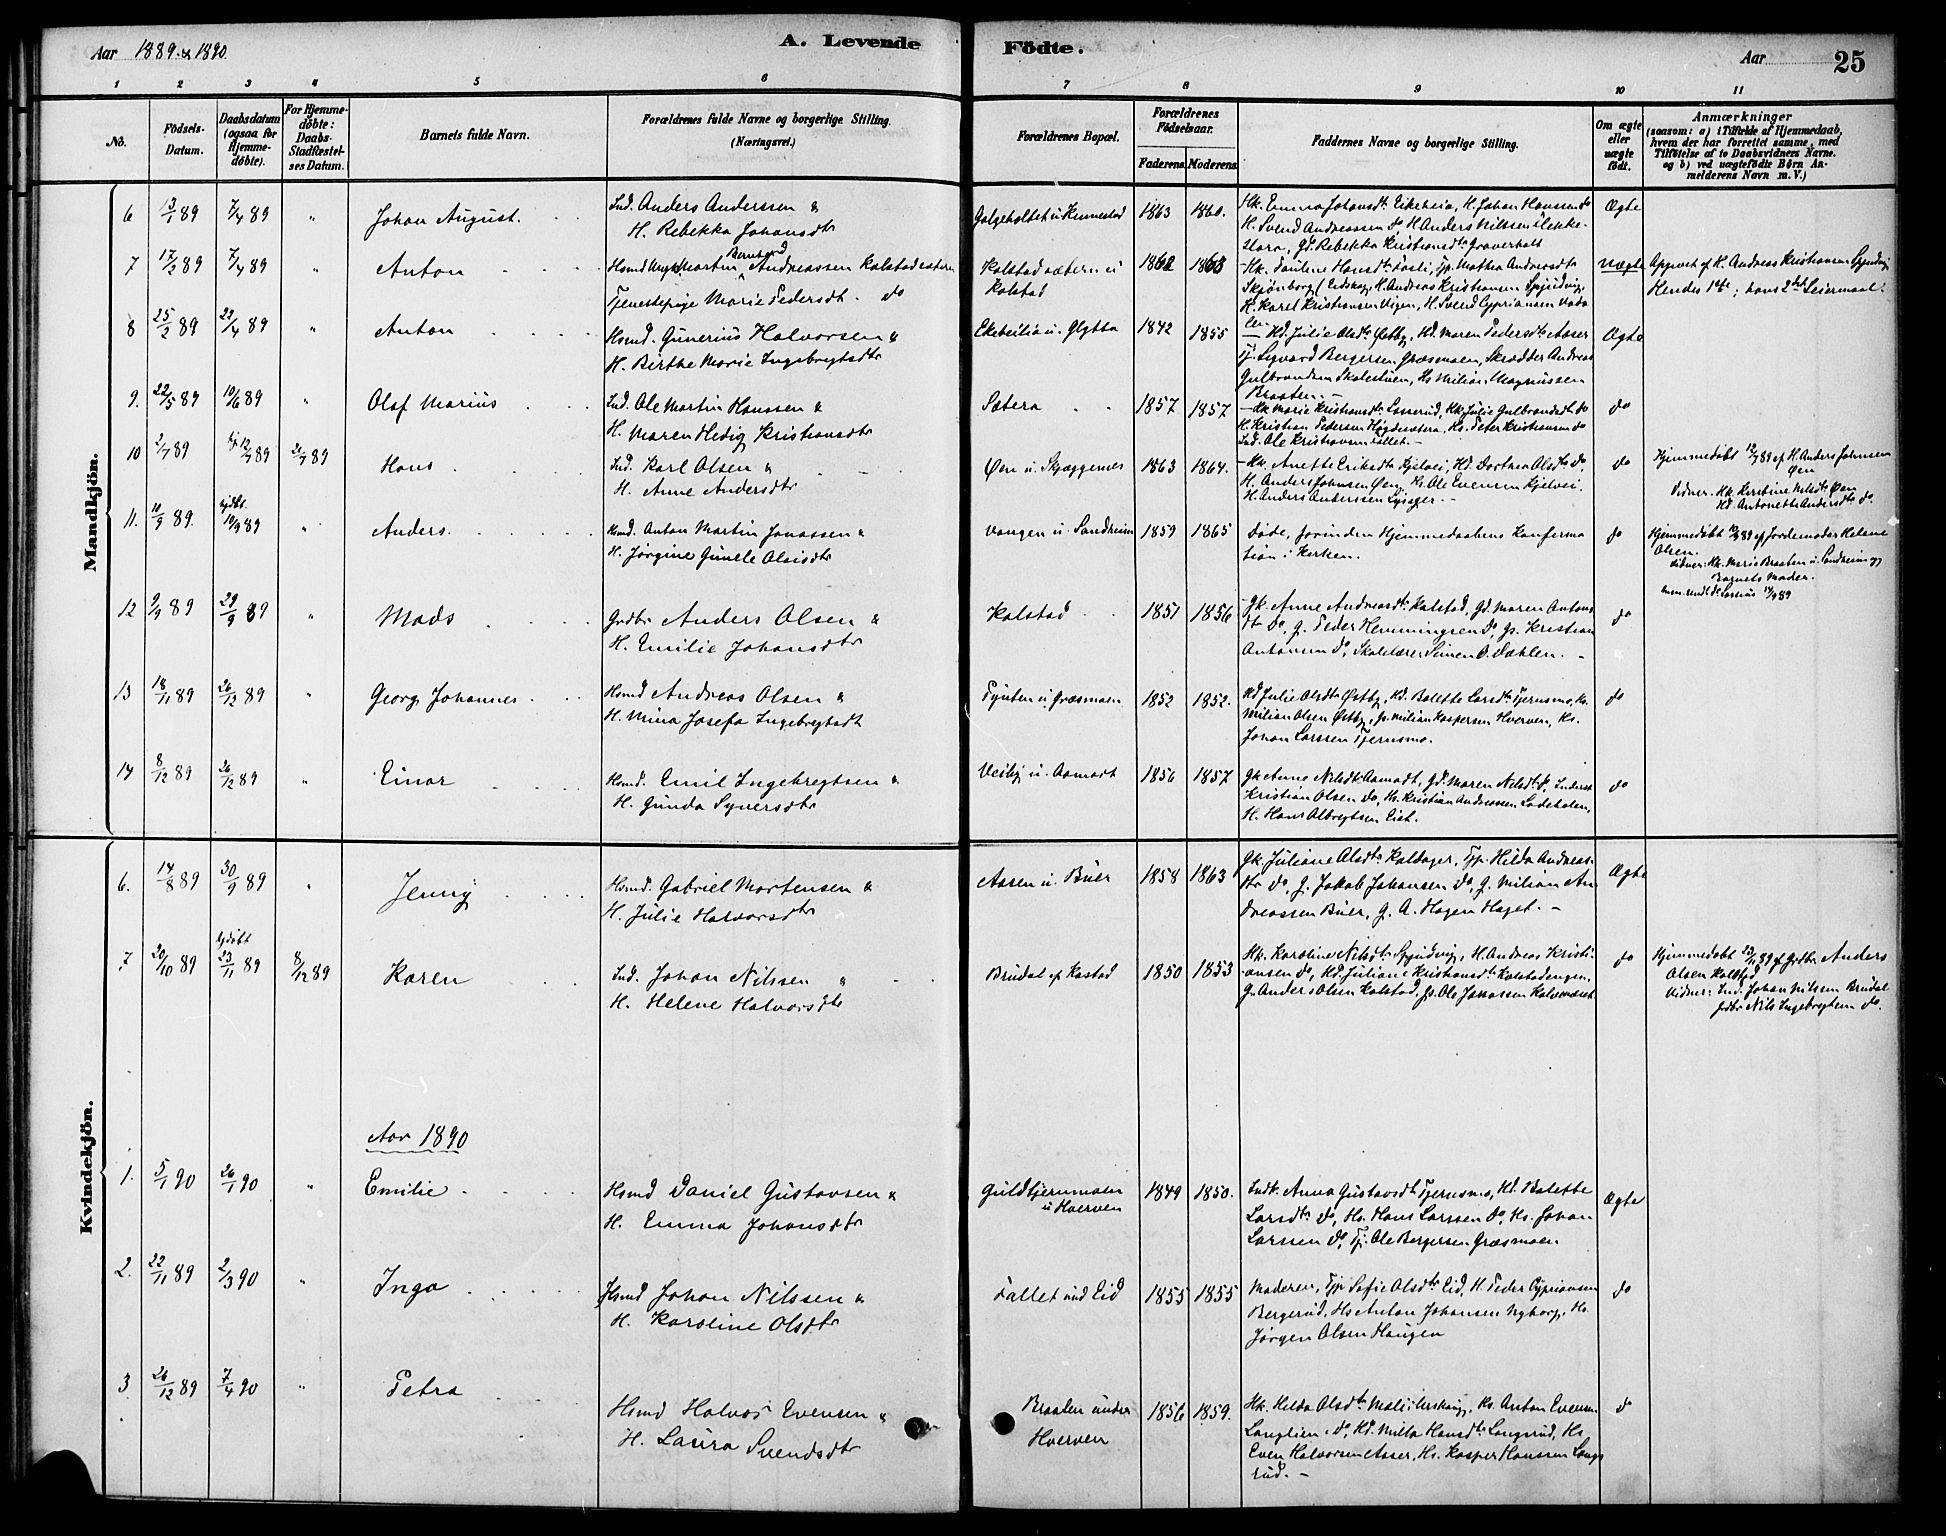 Aar 1889 & 1890.
A. Levende
Födte.
Aar
25
1 2 3 4 5 6 7 8 9 10 11
No.
Födsels-Datum.
Daabsdatum (ogsaa for Hjemme-döbte).
For Hjemme-döbte: Daabs-Stadfæstel-ses Datum.
Barnets fulde Navn.
Forældrenes fulde Navne og borgerlige Stilling. (Næringsvei.)
Forældrenes Bopæl.
Forældrenes Födselsaar.
Faderens. Moderens.
Faddernes Navne og borgerlige Stilling.
Om ægte eller uægte födt.
Anmærkninger
(saasom: a) i Tilfælde af Hjemmedaab, hvem der har forrettet samme, med Tilföielse af to Daabsvidners Navne. og b) ved uægtefödte Börn An-melderens Navn m. V.)
Mandkjön.
6 13/1 89 7/4 89 " Johan August.
Ind. Anders Anderssen &
H. Rebekka Johansdtr
1863 1860.
Hk. Emma Johansdtr Eikeheia, H. Johan Hanssen do
H. Svend Andreassen do, H. Anders Nilssen
Gd. Rebekka Kristiansdtr Graverholt
Ægte
7 17/2 89 7/4 89 " Anton
Martin Bernhard Andreassen Kolstadsætern
Tjenestepige Marie Pedersdt. do
Kolstadsætern u
Kolstad
1862 1863
Hk. Pauline Hansdtr Tp. Mathea Andreasdtr
Skjønborg H. Andreas Kristiansen Spjudvig,
H. Karel Kristiansen Vigen, H. Svend Cypriansen
Uægte
Opgivet af H. Andreas Kristiansen Spjudvig
Hendes 1ste; hans 2det Leiermaal.
8 25/2 89 22/4 89 " Anton
Hsmd. Gunerius Halvorsen &
H. Birthe Marie Ingebrigtsdtr
Ekeheilia u. Glytta
1842 1855
Kd. Julie Olsdtr Østby, Kd. Maren Pedersdtr Asser
Tj. Sigvard Bergersen Græsmoen, Skrædder Andreas
Gulbrandsen Skolestuen, Hs. Milian Magnussen
Braaten. -
Ægte
9. 22/5 89 10/6 89 " Olaf Marius
Ind. Ole Martin Hanssen &
H. Maren Hedvig Kristiansdtr
Sætera
1857 1857
- Hk. Marie Kristiansdtr Kk. Julie Gulbrandsdtr do
H. Kristian Pedersen Høgdesætera, Hs. Peter Kristiansen do
Ind. Ole Kristiansen Fallet. -
do
10 2/7 89 Hj. 12/7 89 21/7 89 Hans
Ind. Karl Olsen &
H. Anne Andersdtr
Øen u. Skjæggenes
1863 1864.
- Hk. Anette Eriksdtr Kjelvei, Kd. Dorthea Olsdtr do,
H. Anders Johnsen Øen, Hs. Ole Evensen Kjelvei.
H. Anders Anderssen
do
Hjemmedøbt 12/7 89 af H. Anders Johnsen
Øen
Vidner. Hk. Kirstine Nilsdtr Øen
Kd. Antonette Andersdtr do.
11. 10/9 89. hjdbt 10/9 89 " Anders.
Hsmd. Anton Martin Jonassen &
H. Jørgine Gunele Olaisdtr
Vangen u. Sandheim
1859 1865
Døde, forinden Hjemmedaabens Konferma
tion i Kirken.
do
Hjemmedøbt 10/9 89 af Jordemoder Helene
Olsen.
Vidner: Hk. Marie Braaten u. Sandheim og
Barnets Moder.
12 9/9 89 29/9 89 " Mads
Grdbr. Anders Olsen &
H. Emilie Johansdtr
Kolstad
1851 1856
Gk. Anne Andreasdtr Kolstad, Gd. Maren Antons
dtr do, G. Peder Hemmingsen do, Gs. Kristian
Antonsen do, Skolelærer Simen O. Dahlen. -
do
13 18/11 89 26/12 89 " Georg Johannes
Hsmd Andreas Olsen &
H. Mina Josefa Ingebrigtsdt
Tjuten u. Græsmoen
1852 1852.
Kd. Julie Olsdtr Østby, Kd. Balette Larsdtr Tjernsmo, Ks.
Milian Olsen Østby, Gs. Milian Kaspersen Hverven, Ks.
Johan Larssen Tjernsmo.
do
14 8/12 89 26/12 89 " Einar
Hsmd. Emil Ingebregtsen &
H. Gunda Syversdtr
Veiby u. Aamodt
1856 1857
Gk. Anne Nilsdtr Aamodt, Gd. Maren Nilsdtr do, Inderst
Kristian Olsen do, Hs. Kristian Andreassen Ladeholen,
H. Hans Albregtsen Eid.
do
Kvindekjön.
6. 14/8 89 30/9 89 " Jenny
Hsmd. Gabriel Mortensen &
H. Julie Halvorsdtr
Aasen u. Buer
1858 1863
Gk. Juliane Olsdtr Kaldager, Tjp. Hilda Andreas-
dtr do, G. Jakob Johansen do, G. Milian An
dreassen Buer, G. A. Hagen Haget. -
Ægte
7. 20/10 89 hjdøbt 23/11 89 8/12 89 Karen
Ind. Johan Nilssen &
H. Helene Halvorsdtr
Brudal af Kastad
1850 1853
Hk. Karoline Nilsdtr Spjudvig, H. Andreas Kristi-
ansen do, Kd. Juliane Kristiansdtr Kolstadengen,
G. Anders Olsen Kolstad, Gs. Ole Jonassen
do
Hjemmedøbt 23/11 89 af Grdbr. Anders
Olsen Kolstad
Vidner: Ind. Johan Nilssen Brudal
Grdbr Nils Ingebregtsen do.
Aar 1890
1. 5/1 90 26/1 90 " Emilie
Hsmd Daniel Gustavsen &
H. Emma Johansdtr
Guldtjernmoen
u Hverven
1849 1850.
Indk. Anna Gustavsdtr Tjernsmo, Kd. Balette
Larsdtr do, Hs. Hans Larssen do, Ks. Johan
Larssen do, Tj. Ole Bergersen Græsmoen
Ægte
2. 22/11 89 2/3 90 " Inga
Hsmd Johan Nilssen &
H. Karoline Olsdtr
Fallet und Eid
1855 1855
Moderen, Tjp Sofie Olsdtr Eid, H. Peder Cypriansen
Bergerud, Hs Anton Johansen Nyborg, Hs.
Jørgen Olsen Haugen
do
3 26/12 89 7/4 90 " Petra
Hsmd Halvor Evensen &
H. Laura Svendsdtr
Braaten under
Hverven
1856 1859.
Hk. Hilda Olsdtr Ks. Anton Evensen
Langlien do, Kd. Milla Hansdtr Langsrud, Hs
Even Halvorsen Asser, Hs. Kasper Hanssen Langs
rud. -
do